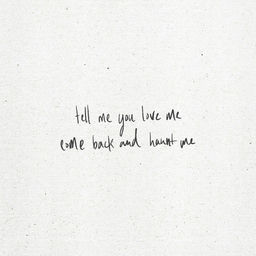 tell me you love me
come back and haunt me